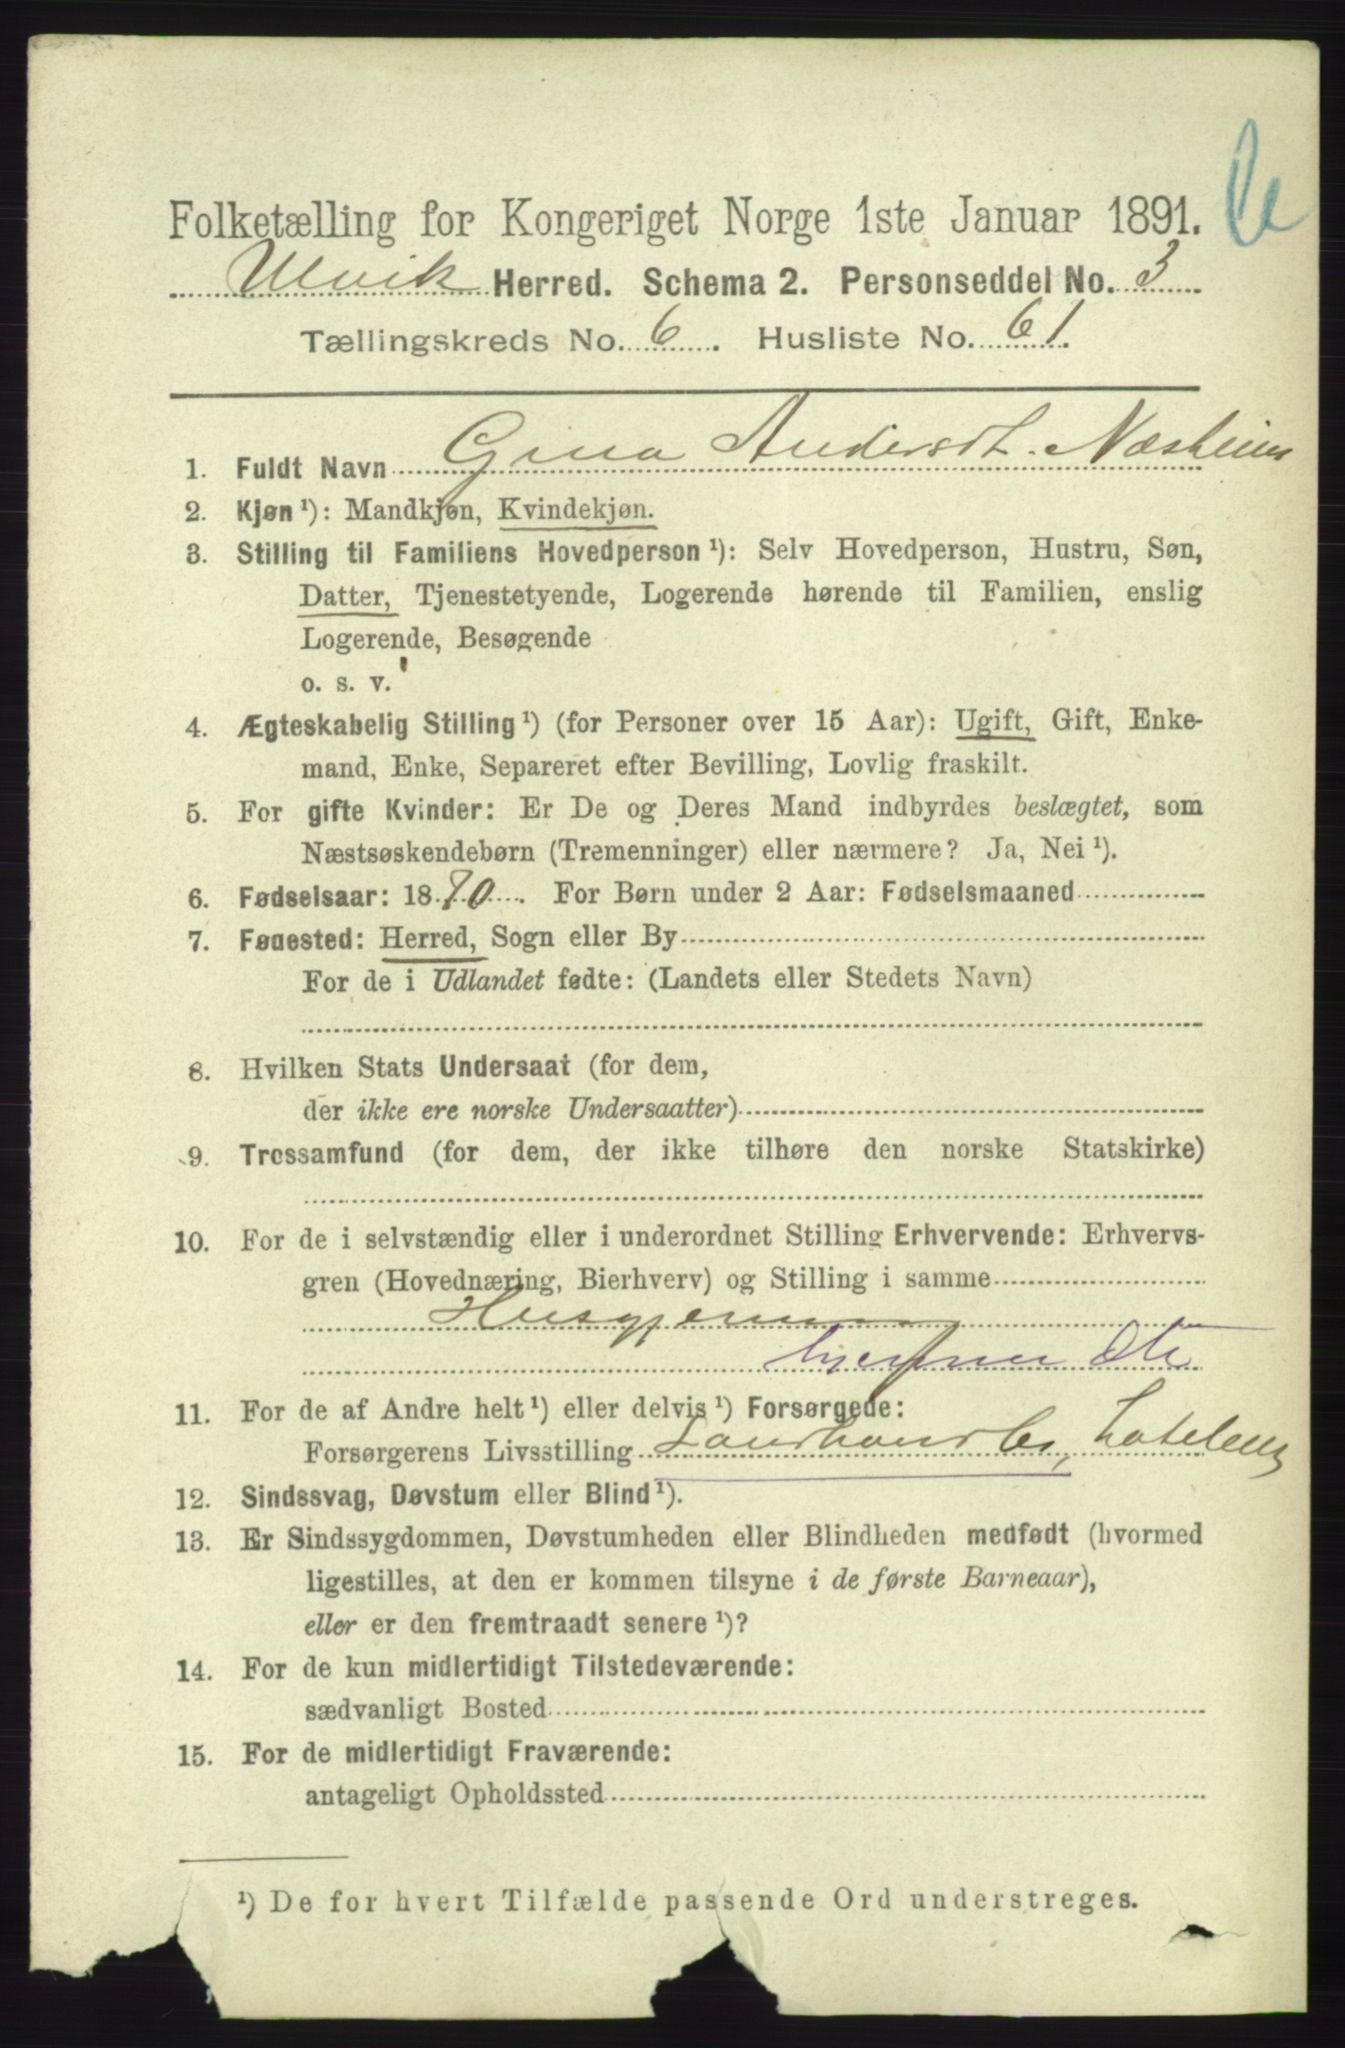 Folketælling for Kongeriget Norge 1ste Januar 1891.
Ulvik Herred. Schema 2. Personseddel No. 3
Tællingskreds No. 6. Husliste No. 61.
1. Fuldt Navn Gina Andersdt. Næsheim
2. Kjøn ¹): Mandkjøn, Kvindekjøn.
3. Stilling til Familiens Hovedperson ¹): Selv Hovedperson, Hustru, Søn,
Datter, Tjenestetyende, Logerende hørende til Familien, enslig
Logerende, Besøgende
o. s. v.
4. Ægteskabelig Stilling ¹) (for Personer over 15 Aar): Ugift, Gift, Enke-
mand, Enke, Separeret efter Bevilling, Lovlig fraskilt.
5. For gifte Kvinder: Er De og Deres Mand indbyrdes beslægtet, som
Næstsøskendebørn (Tremenninger) eller nærmere? Ja, Nei ¹).
6. Fødselsaar: 1870. For Børn under 2 Aar: Fødselsmaaned
7. Fødested: Herred, Sogn eller By
For de i Udlandet fødte: (Landets eller Stedets Navn)
8. Hvilken Stats Undersaat (for dem,
der ikke ere norske Undersaatter)
9. Trossamfund (for dem, der ikke tilhøre den norske Statskirke)
10. For de i selvstændig eller i underordnet Stilling Erhvervende: Erhvervs-
gren (Hovednæring, Bierhverv) og Stilling i samme
Husgjerning
11. For de af Andre helt ¹) eller delvis ¹) Forsørgede:
Forsørgerens Livsstilling Landhandler,
12. Sindssvag, Døvstum eller Blind ¹).
13. Er Sindssygdommen, Døvstumheden eller Blindheden medfødt (hvormed
ligestilles, at den er kommen tilsyne i de første Barneaar),
eller er den fremtraadt senere ¹)?
14. For de kun midlertidigt Tilstedeværende:
sædvanligt Bosted
15. For de midlertidigt Fraværende:
antageligt Opholdssted
¹) De for hvert Tilfælde passende Ord understreges.